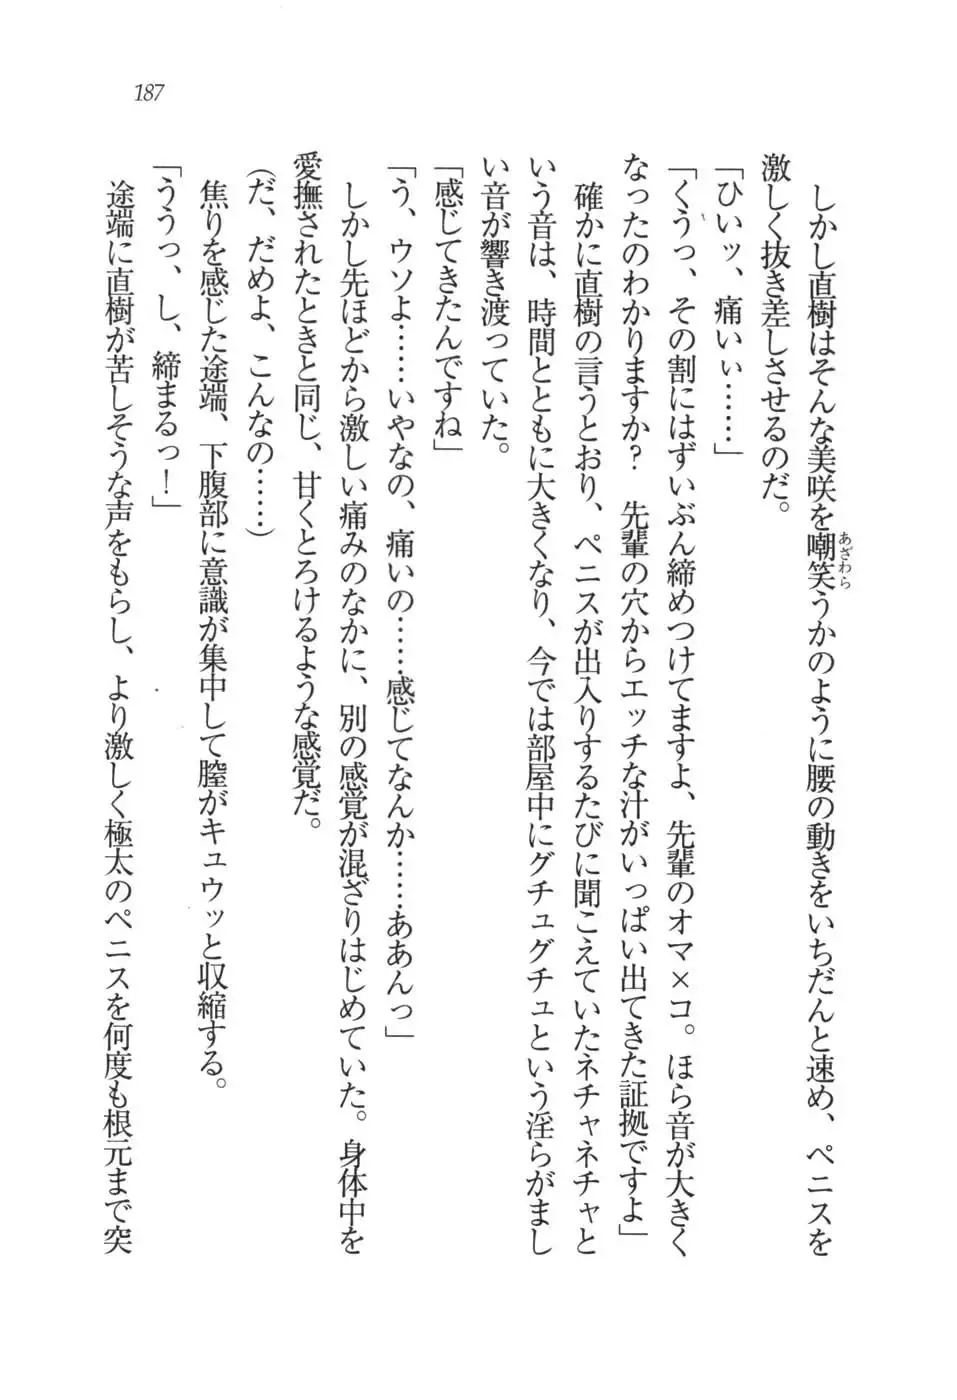 187
しかし直樹はそんな美咲を嘲笑うかのように腰の動きをいちだんと速め、ペニスを
あざわら
激しく抜き差しさせるのだ。
「ひいッ、痛いぃ……」
「くうっ、その割にはずいぶん締めつけてますよ、先輩のオマ×コ。ほら音が大きく
なったのわかりますか？　先輩の穴からエッチな汁がいっぱい出てきた証拠ですよ」
確かに直樹の言うとおり、ペニスが出入りするたびに聞こえていたネチャネチャと
いう音は、時間とともに大きくなり、今では部屋中にグチュグチュという淫らがまし
い音が響き渡っていた。
「感じてきたんですね」
「う、ウソよ……いやなの、痛いの……感じてなんか……ああんっ」
しかし先ほどから激しい痛みのなかに、別の感覚が混ざりはじめていた。身体中を
愛撫されたときと同じ、甘くとろけるような感覚だ。
（だ、だめよ、こんなの……）
焦りを感じた途端、下腹部に意識が集中して膣がキュウッと収縮する。
「ううっ、し、締まるっ！」
途端に直樹が苦しそうな声をもらし、より激しく極太のペニスを何度も根元まで突